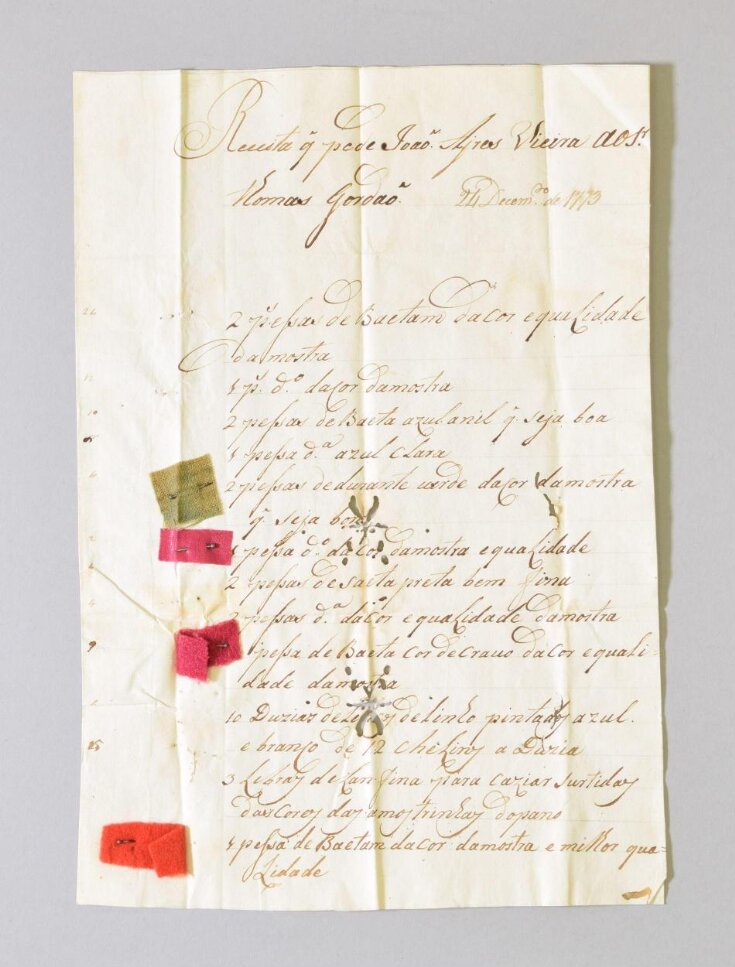 Receita q̃ pede João Ayres Vieira aos Sr.
Thomas Gordaõ 24 Decem.º de 1773
2 pessas de Baetam da cor e qualidade
da mostra
1 p. d.º da cor da mostra
2 pessas de Baeta azul anil q̃ seja boa
1 pessa d.ª azul clara
2 pessas de durante verde da cor da mostra
q̃ seja bom
1 pessa d.º da cor da mostra e qualidade
2 pessas de saeta preta bem fina
2 pessas d.ª da cor e qualidade da mostra
1 pessa de Baeta cor de cravo da cor e quali-
dade da mostra
10 Duzias de de linho pintados azul
e branço de 12 chelins a Duzia
3 Lebras de Lan fina para caziar surtidas
das cores das amostrinhas do pano
1 pessa de Baetam da cor da mostra e milhor qua-
Lidade